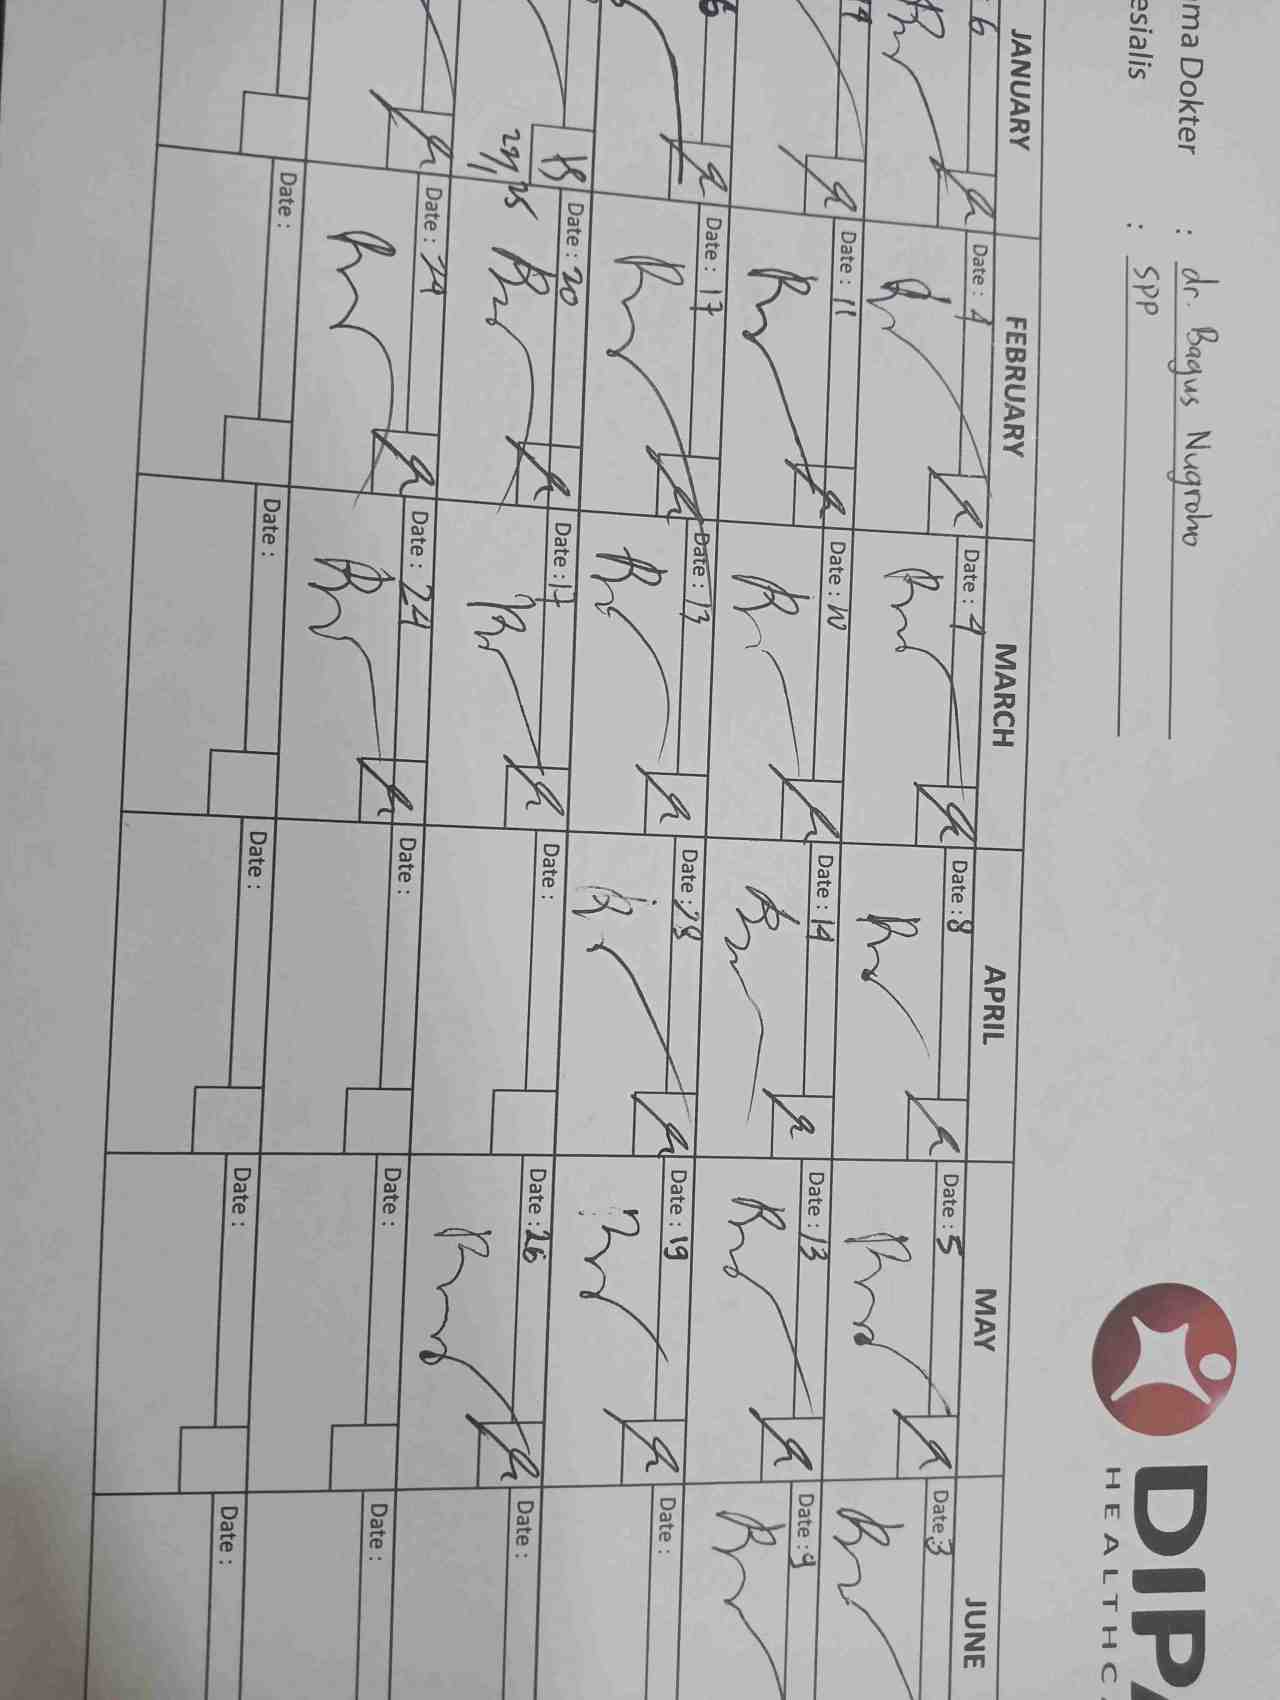 DIPA
HEALTHC
ma Dokter : dr. Bagus Nugroho
esialis : SPP
JANUARY FEBRUARY MARCH APRIL MAY JUNE
: 6 Date : 4 Date : 4 Date : 8 Date : 5 Date : 3
14 Date : 11 Date : 10 Date : 14 Date : 13 Date : 9
6 Date : 17 Date : 13 Date : 28 Date : 19 Date :
Date : 20 Date : 17 Date : Date : 26 Date :
Date : 24 Date : 24 Date : Date : Date :
Date : Date : Date : Date : Date :